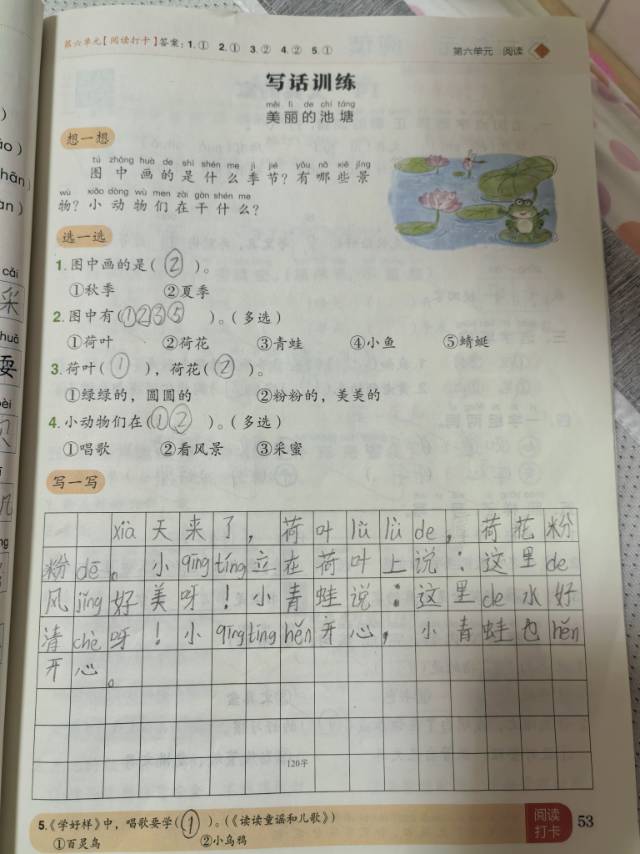 第六单元【阅读打卡】答案：1.① 2.① 3.② 4.② 5.①
第六单元 阅读
写话训练
měi lì de chí táng
美丽的池塘
想一想
tú zhōng huà de shì shén me jì jié yǒu nǎ xiē jǐng
图中画的是什么季节？有哪些景
wù xiǎo dòng wù men zài gàn shén me
物？小动物们在干什么？
选一选
1.图中画的是(②)。
①秋季 ②夏季
2.图中有(①②③⑤)。(多选)
①荷叶 ②荷花 ③青蛙 ④小鱼 ⑤蜻蜓
3.荷叶(①)，荷花(②)。
①绿绿的，圆圆的 ②粉粉的，美美的
4.小动物们在(①②)。(多选)
①唱歌 ②看风景 ③采蜜
写一写
xià天来了，荷叶lǜ lǜ de，荷花粉
粉dē。小qīng tíng立在荷叶上说：这里de
风jǐng好美呀！小青蛙说：这里de水好
清chè呀！小qīng tíng hěn开心，小青蛙也hěn
开心。
120字
5.《学好样》中，唱歌要学(①)。(《读读童谣和儿歌》)
①百灵鸟 ②小乌鸦
阅读
打卡
53